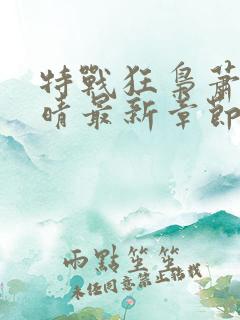 特戰狂梟蕭
晴最新章節
兩點笙笙
未經同意禁止轉載